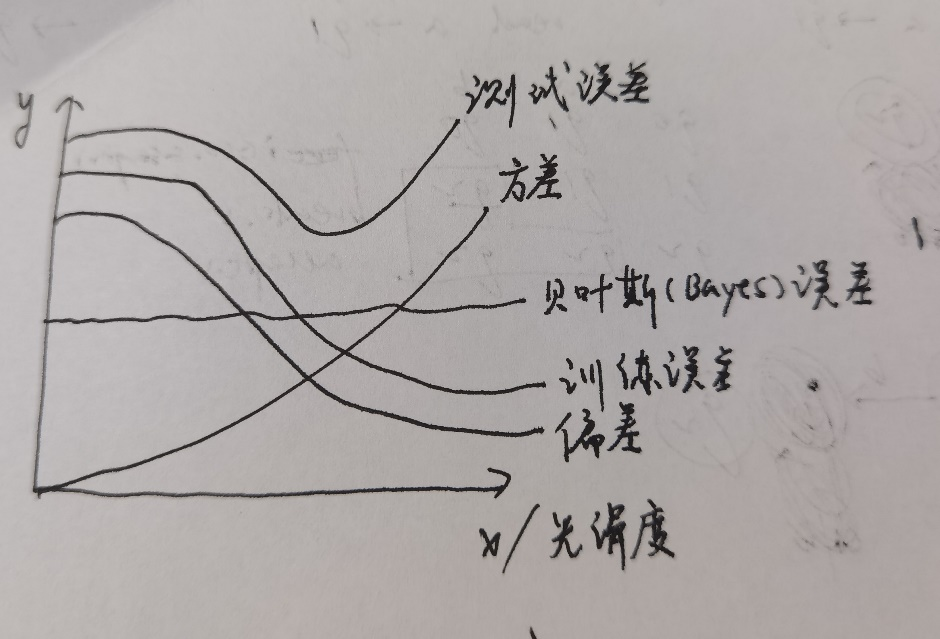 y
测试误差
方差
贝叶斯(Bayes)误差
训练误差
偏差
x/光滑度